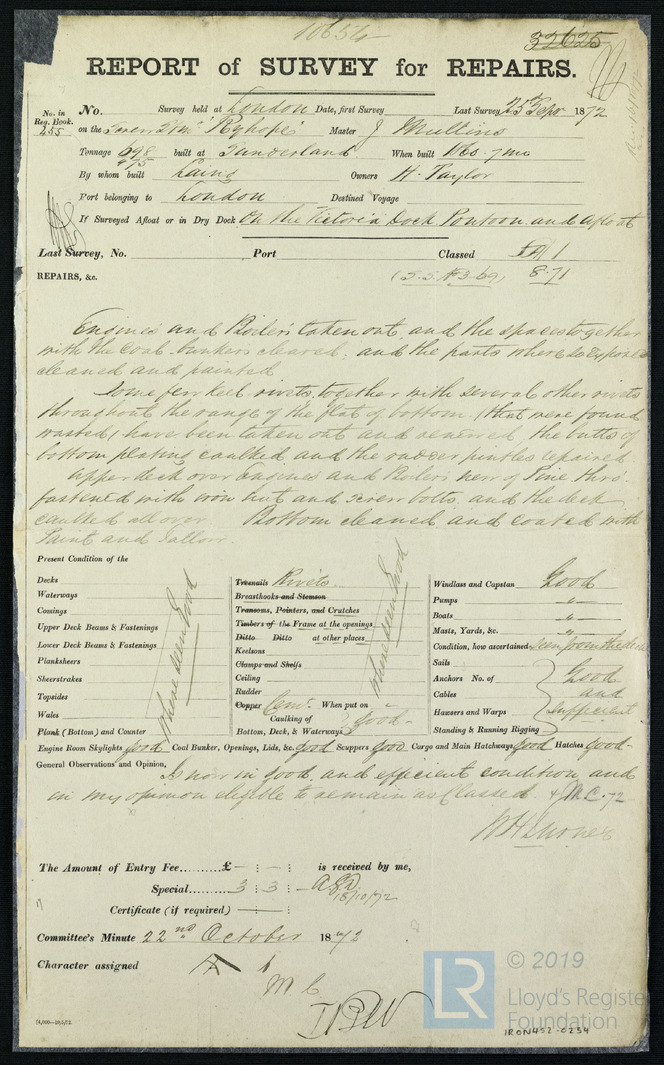 10654
32625
REPORT of SURVEY for REPAIRS.
No. in Reg. Book. 255
No. Survey held at London Date, first Survey Last Survey 25 Sepr 1872
on the Screw Str "Ryhope" Master J Mullins
Tonnage 698 built at Sunderland When built 1865. 7mo
475
By whom built Laing Owners H. Taylor
Port belonging to London Destined Voyage
If Surveyed Afloat or in Dry Dock On the Victoria Dock Pontoon and afloat
Last Survey, No. Port Classed A 1
REPAIRS, &c. (S.S. No 3-69) 8.71
Engines and Boilers taken out, and the spaces together
with the coal bunkers cleared, and the parts where so exposed
cleaned and painted
Some few keel rivets, together with several other rivets
throughout the range of the flat of bottom (that were found
wasted) have been taken out and renewed, the butts of
bottom plating caulked and the rudder pintles repaired
Upper deck over Engines and Boilers new of Pine thro
fastened with iron nut and screw bolts, and the deck
caulked all over Bottom cleaned and coated with
Paint and Tallow.
Present Condition of the
Decks
Waterways
Comings
Upper Deck Beams & Fastenings
Lower Deck Beams & Fastenings
Planksheers
Sheerstrakes
Topsides
Wales
Plank (Bottom) and Counter
where seen Good
Treenails Rivets
Breasthooks and Stemson
Transoms, Pointers, and Crutches
Timbers of the Frame at the openings
Ditto Ditto at other places
Keelsons
Clamps and Shelfs
Ceiling
Rudder
Copper Cemt. When put on "
Caulking of Bottom, Deck, & Waterways Good
where seen Good
Windlass and Capstan Good
Pumps "
Boats "
Masts, Yards, &c. "
Condition, how ascertained seen from the deck
Sails
Anchors No. of
Cables
Hawsers and Warps
Standing & Running Rigging
Good and sufficient
Engine Room Skylights good Coal Bunker, Openings, Lids, &c. good Scuppers good Cargo and Main Hatchways good Hatches good
General Observations and Opinion,
Is now in good, and efficient condition, and
in my opinion eligible to remain as Classed & M.C. 72
The Amount of Entry Fee.........£ — : — : is received by me,
Special...... 3 : 3 : —
18/10/72
Certificate (if required) — : :
Committee's Minute 22nd October 1872
Character assigned A 1
M C
© 2019
Lloyd's Register
Foundation
IRON452-0234